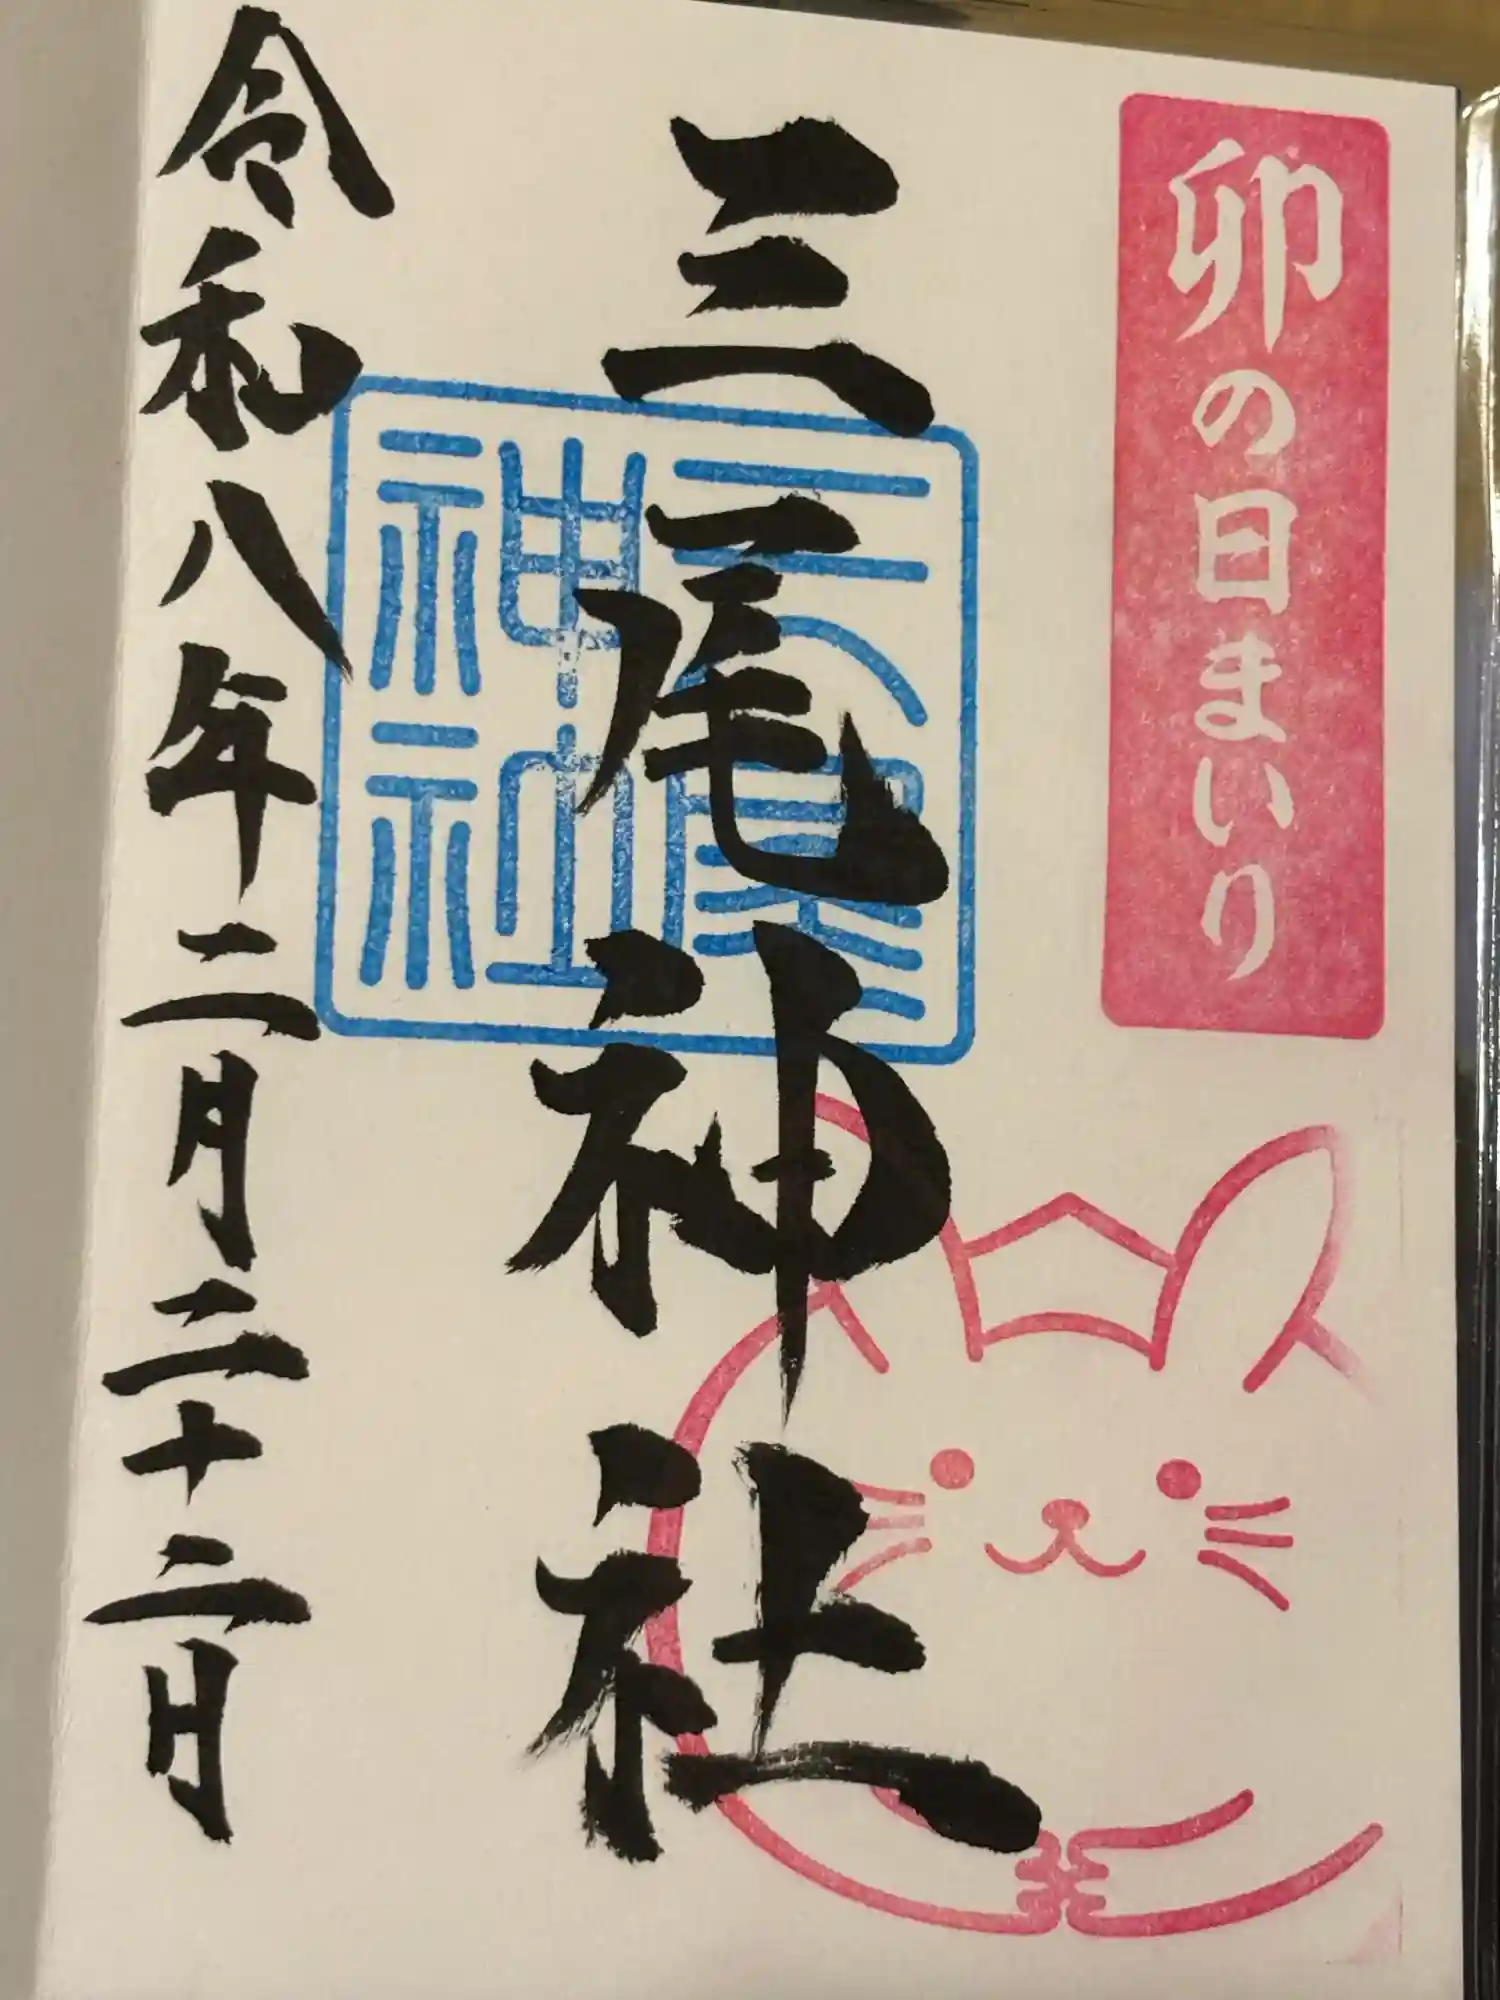 卯の日まいり
三尾神社
三尾
神社
令和八年二月二十二日